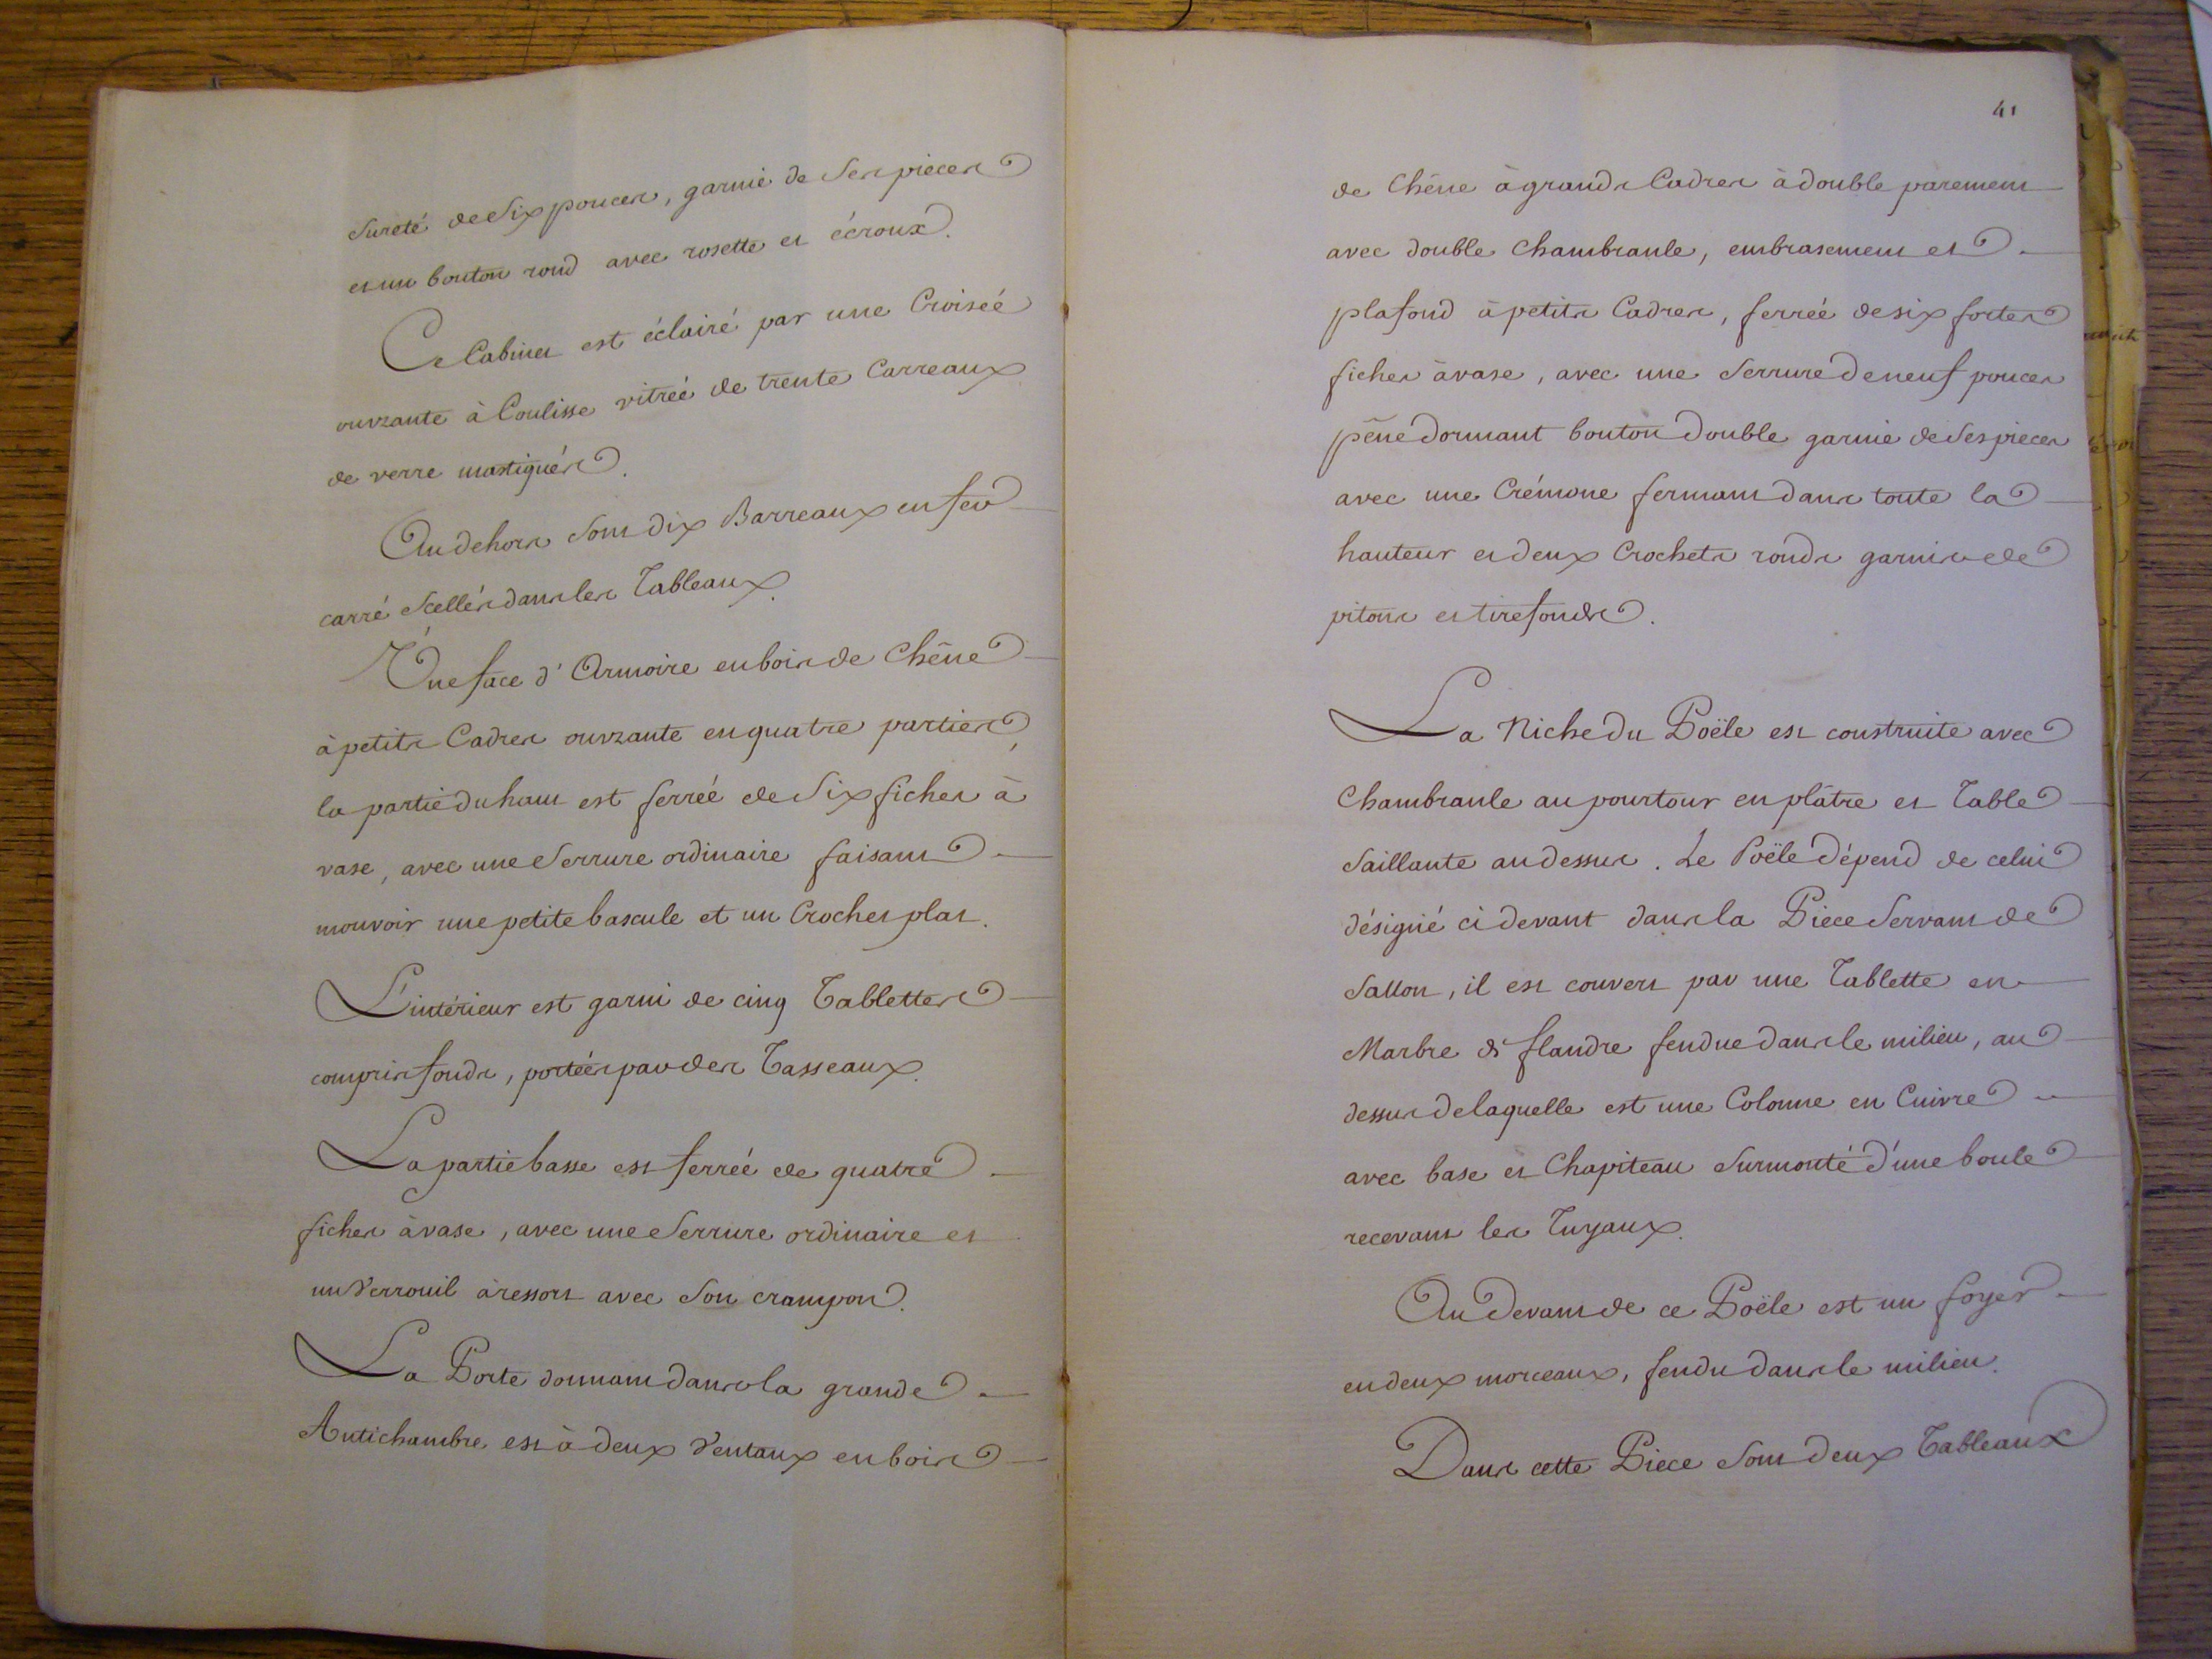 Sureté de Six pouces, garnie de Ses pieces
et un bouton rond avec rosette et écroux.
Ce Cabinet est éclairé par une Croiseé
ouvrante à Coulisse vitreé de trente Carreaux
de verre mastiqués.
Au dehors Sont dix Barreaux en fer
carré Scellés dans les Tableaux.
Une face d'Armoire en bois de Chêne
à petits Cadres ouvrante en quatre parties,
la partie du haut est ferreé de Six fiches à
vase, avec une Serrure ordinaire faisant
mouvoir une petite bascule et un Crochet plat.
L'intérieur est garni de cinq Tablettes
compris fonds, porteés par des Tasseaux.
La partie basse est ferreé de quatre
fiches à vase, avec une Serrure ordinaire et
un Verrouil à ressort avec Son crampon.
La Porte donnant dans la grande
Antichambre est à deux Ventaux en bois
41
de Chêne à grands Cadres à double parement
avec double Chambranle, embrasement et
plafond à petits Cadres, ferreé de six fortes
fiches à vase, avec une Serrure de neuf pouces
pêne dormant bouton double garnie de Ses pieces
avec une Crémone fermant dans toute la
hauteur et deux Crochets ronds garnis de
pitons et tirefonds.
La Niche du Poële est construite avec
Chambranle au pourtour en plâtre et Table
Saillante au dessus. Le Poële dépend de celui
désigné ci devant dans la Piece Servant de
Sallon, il est couvert par une Tablette en
Marbre de flandre fendue dans le milieu, au
dessus de laquelle est une Colonne en Cuivre
avec base et Chapiteau Surmonté d'une boule
recevant les Tuyaux.
Au devant de ce Poële est un foyer
en deux morceaux, fendu dans le milieu.
Dans cette Piece Sont deux Tableaux